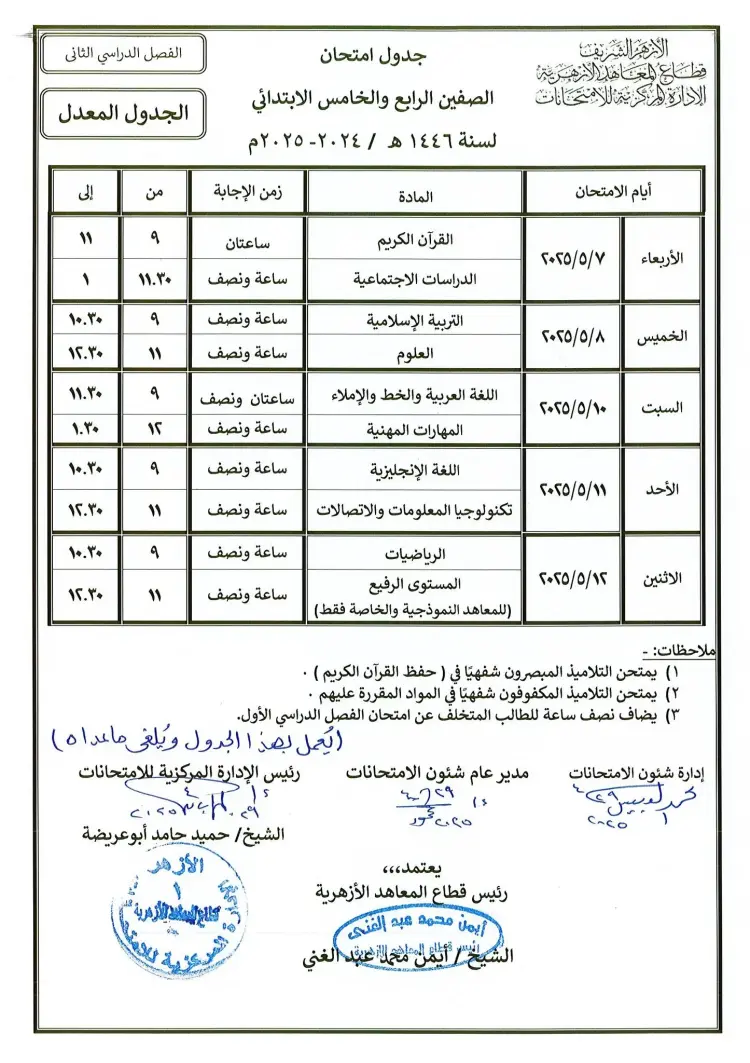 الأزهر الشريف
قطاع المعاهد الأزهرية
الإدارة المركزية للامتحانات
جدول امتحان
الصفين الرابع والخامس الابتدائي
لسنة ١٤٤٦ هـ / ٢٠٢٤-٢٠٢٥م
الفصل الدراسي الثانى
الجدول المعدل
أيام الامتحان المادة زمن الإجابة من إلى
الأربعاء ٢٠٢٥/٥/٧ القرآن الكريم ساعتان ٩ ١١
الدراسات الاجتماعية ساعة ونصف ١١.٣٠ ١
الخميس ٢٠٢٥/٥/٨ التربية الإسلامية ساعة ونصف ٩ ١٠.٣٠
العلوم ساعة ونصف ١١ ١٢.٣٠
السبت ٢٠٢٥/٥/١٠ اللغة العربية والخط والإملاء ساعتان ونصف ٩ ١١.٣٠
المهارات المهنية ساعة ونصف ١٢ ١.٣٠
الأحد ٢٠٢٥/٥/١١ اللغة الإنجليزية ساعة ونصف ٩ ١٠.٣٠
تكنولوجيا المعلومات والاتصالات ساعة ونصف ١١ ١٢.٣٠
الاثنين ٢٠٢٥/٥/١٢ الرياضيات ساعة ونصف ٩ ١٠.٣٠
المستوى الرفيع ساعة ونصف ١١ ١٢.٣٠
(للمعاهد النموذجية والخاصة فقط)
ملاحظات: -
١) يمتحن التلاميذ المبصرون شفهيًا في ( حفظ القرآن الكريم ) ٠
٢) يمتحن التلاميذ المكفوفون شفهيًا في المواد المقررة عليهم ٠
٣) يضاف نصف ساعة للطالب المتخلف عن امتحان الفصل الدراسي الأول.
(يُعمل بهذا الجدول ويُلغى ماعداه)
إدارة شئون الامتحانات
مدير عام شئون الامتحانات
رئيس الإدارة المركزية للامتحانات
الشيخ/ حميد حامد أبوعريضة
يعتمد،،،
رئيس قطاع المعاهد الأزهرية
أيمن محمد عبد الغنى
رئيس قطاع المعاهد الأزهرية
الشيخ / أيمن محمد عبد الغني
الأزهر
قطاع المعاهد الأزهرية